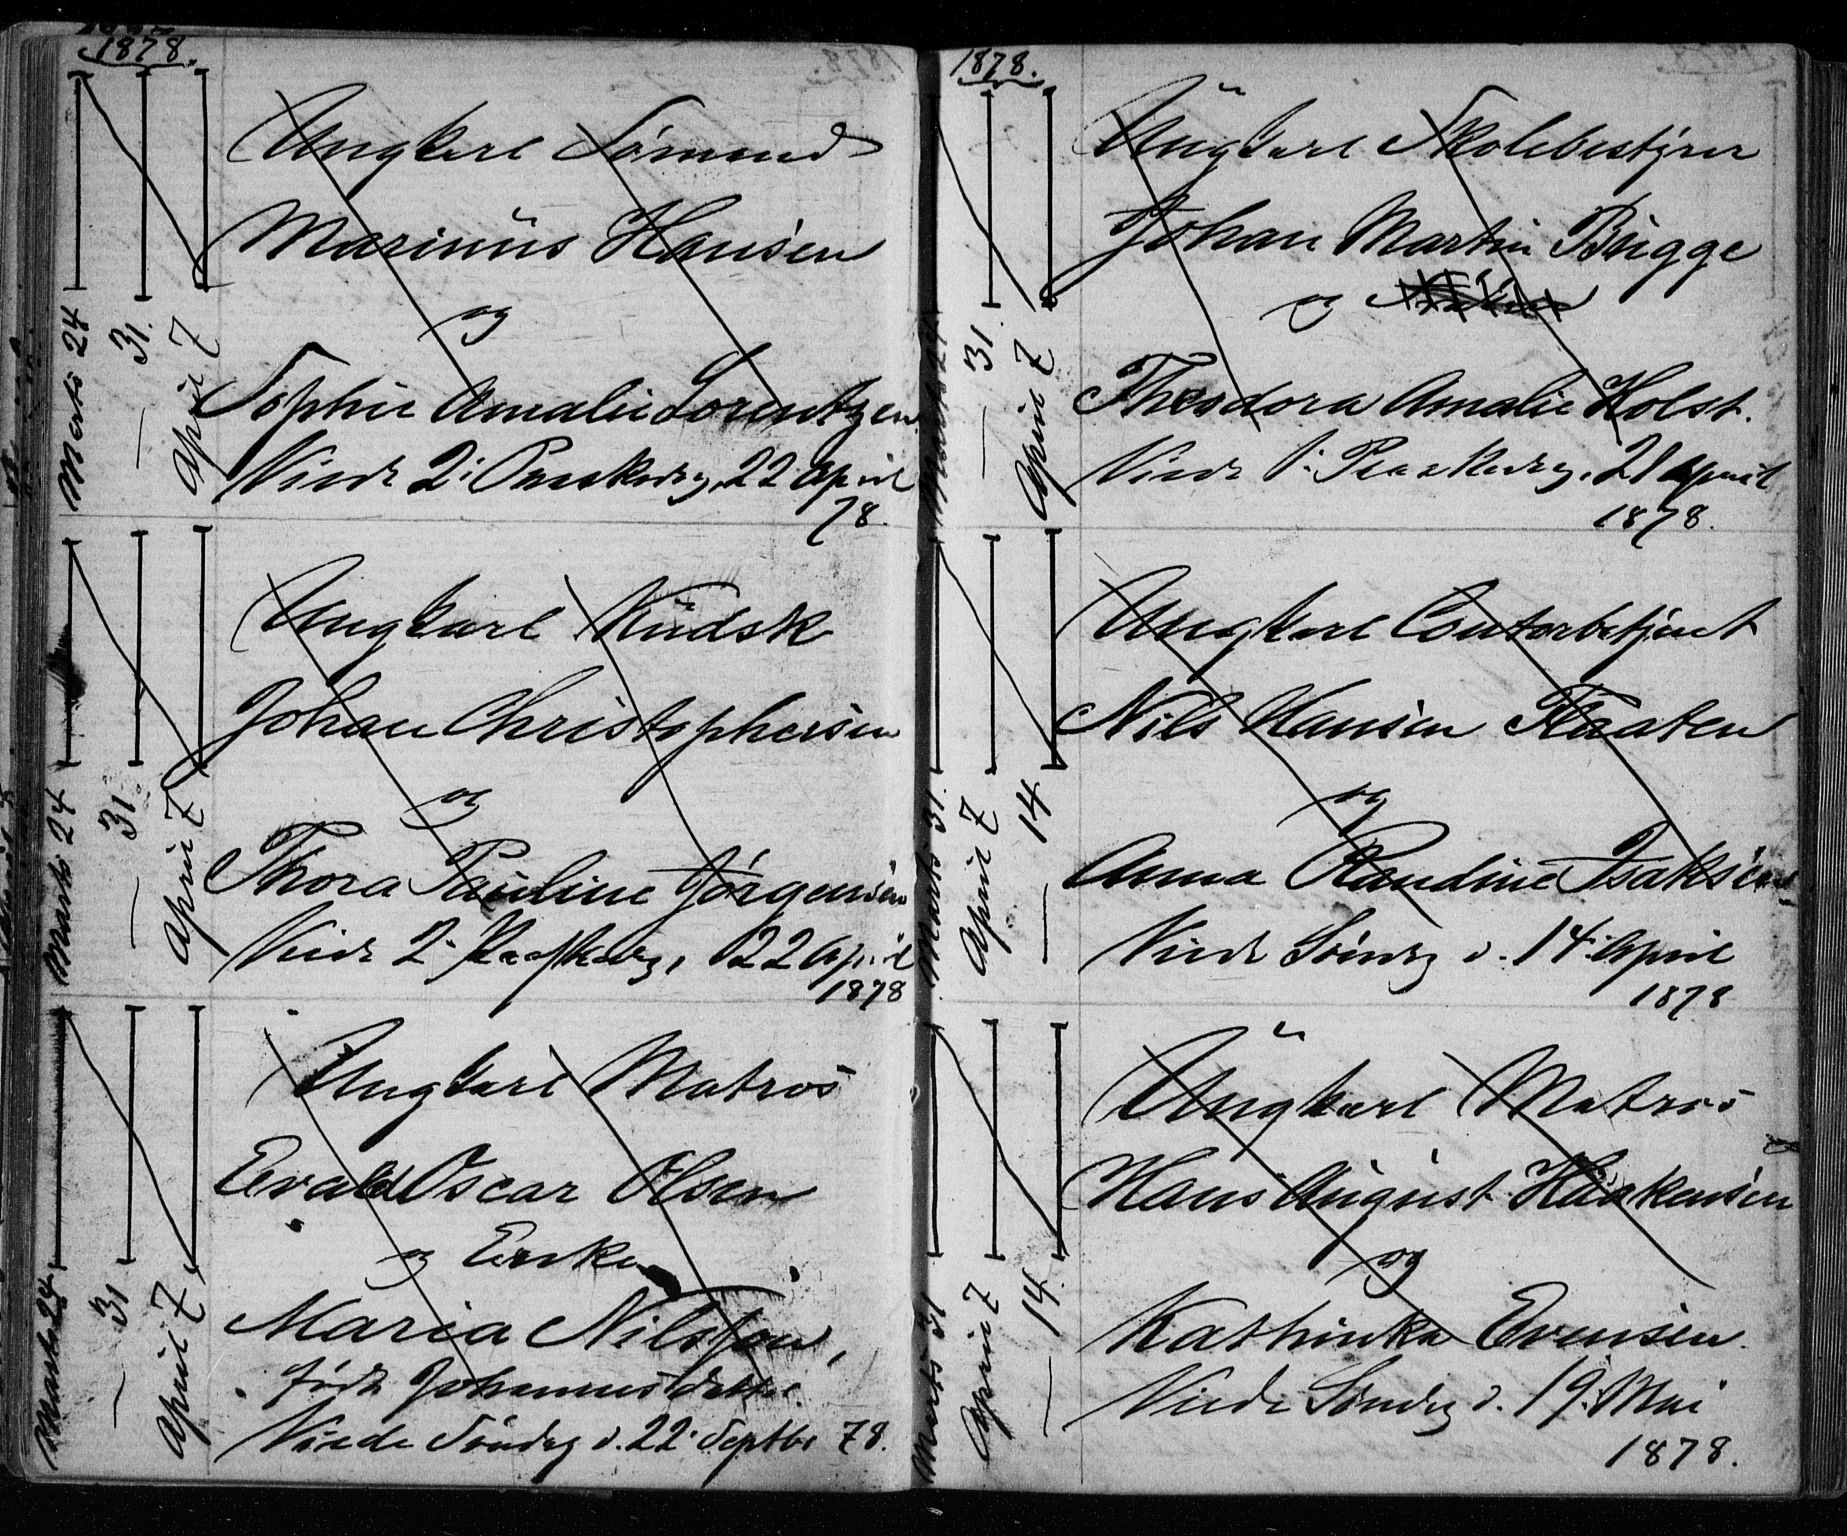 1878.
Ungkarl Sømand
Marinus Hansen
og
Sophie Amalie Lorentzen
Viede 2: Paaskedag, 22 April
78.
Marts 24
— 31.
April 7
Ungkarl Kudsk
Johan Christophersen
og
Thora Pauline Jørgensen
Viede 2: Paaskedag, 22 April
1878
Marts 24
— 31.
April 7
Ungkarl Matros
Evald Oscar Olsen
og Enke
Maria Nilsson,
født Johannesdatter
Viede Søndag d. 22 Septbr 78.
Marts 24
— 31
April 7
1878.
Ungkarl Skolebestyrer
Johan Martin Brigge
og
Theodora Amalie Holst.
Viede 1: Paaskedag, 21 April
1878.
Marts 24
— 31.
April 7
Ungkarl Contorbetjent
Nils Hansen Flaaten
og
Anna Randine Isaksen
Viede Søndag d. 14 April
1878
Marts 31.
April 7
— 14
Ungkarl Matros
Hans August Haakensen
og
Kathinka Evensen.
Viede Søndag d. 19. Mai
1878.
Marts 31
April 7
— 14.